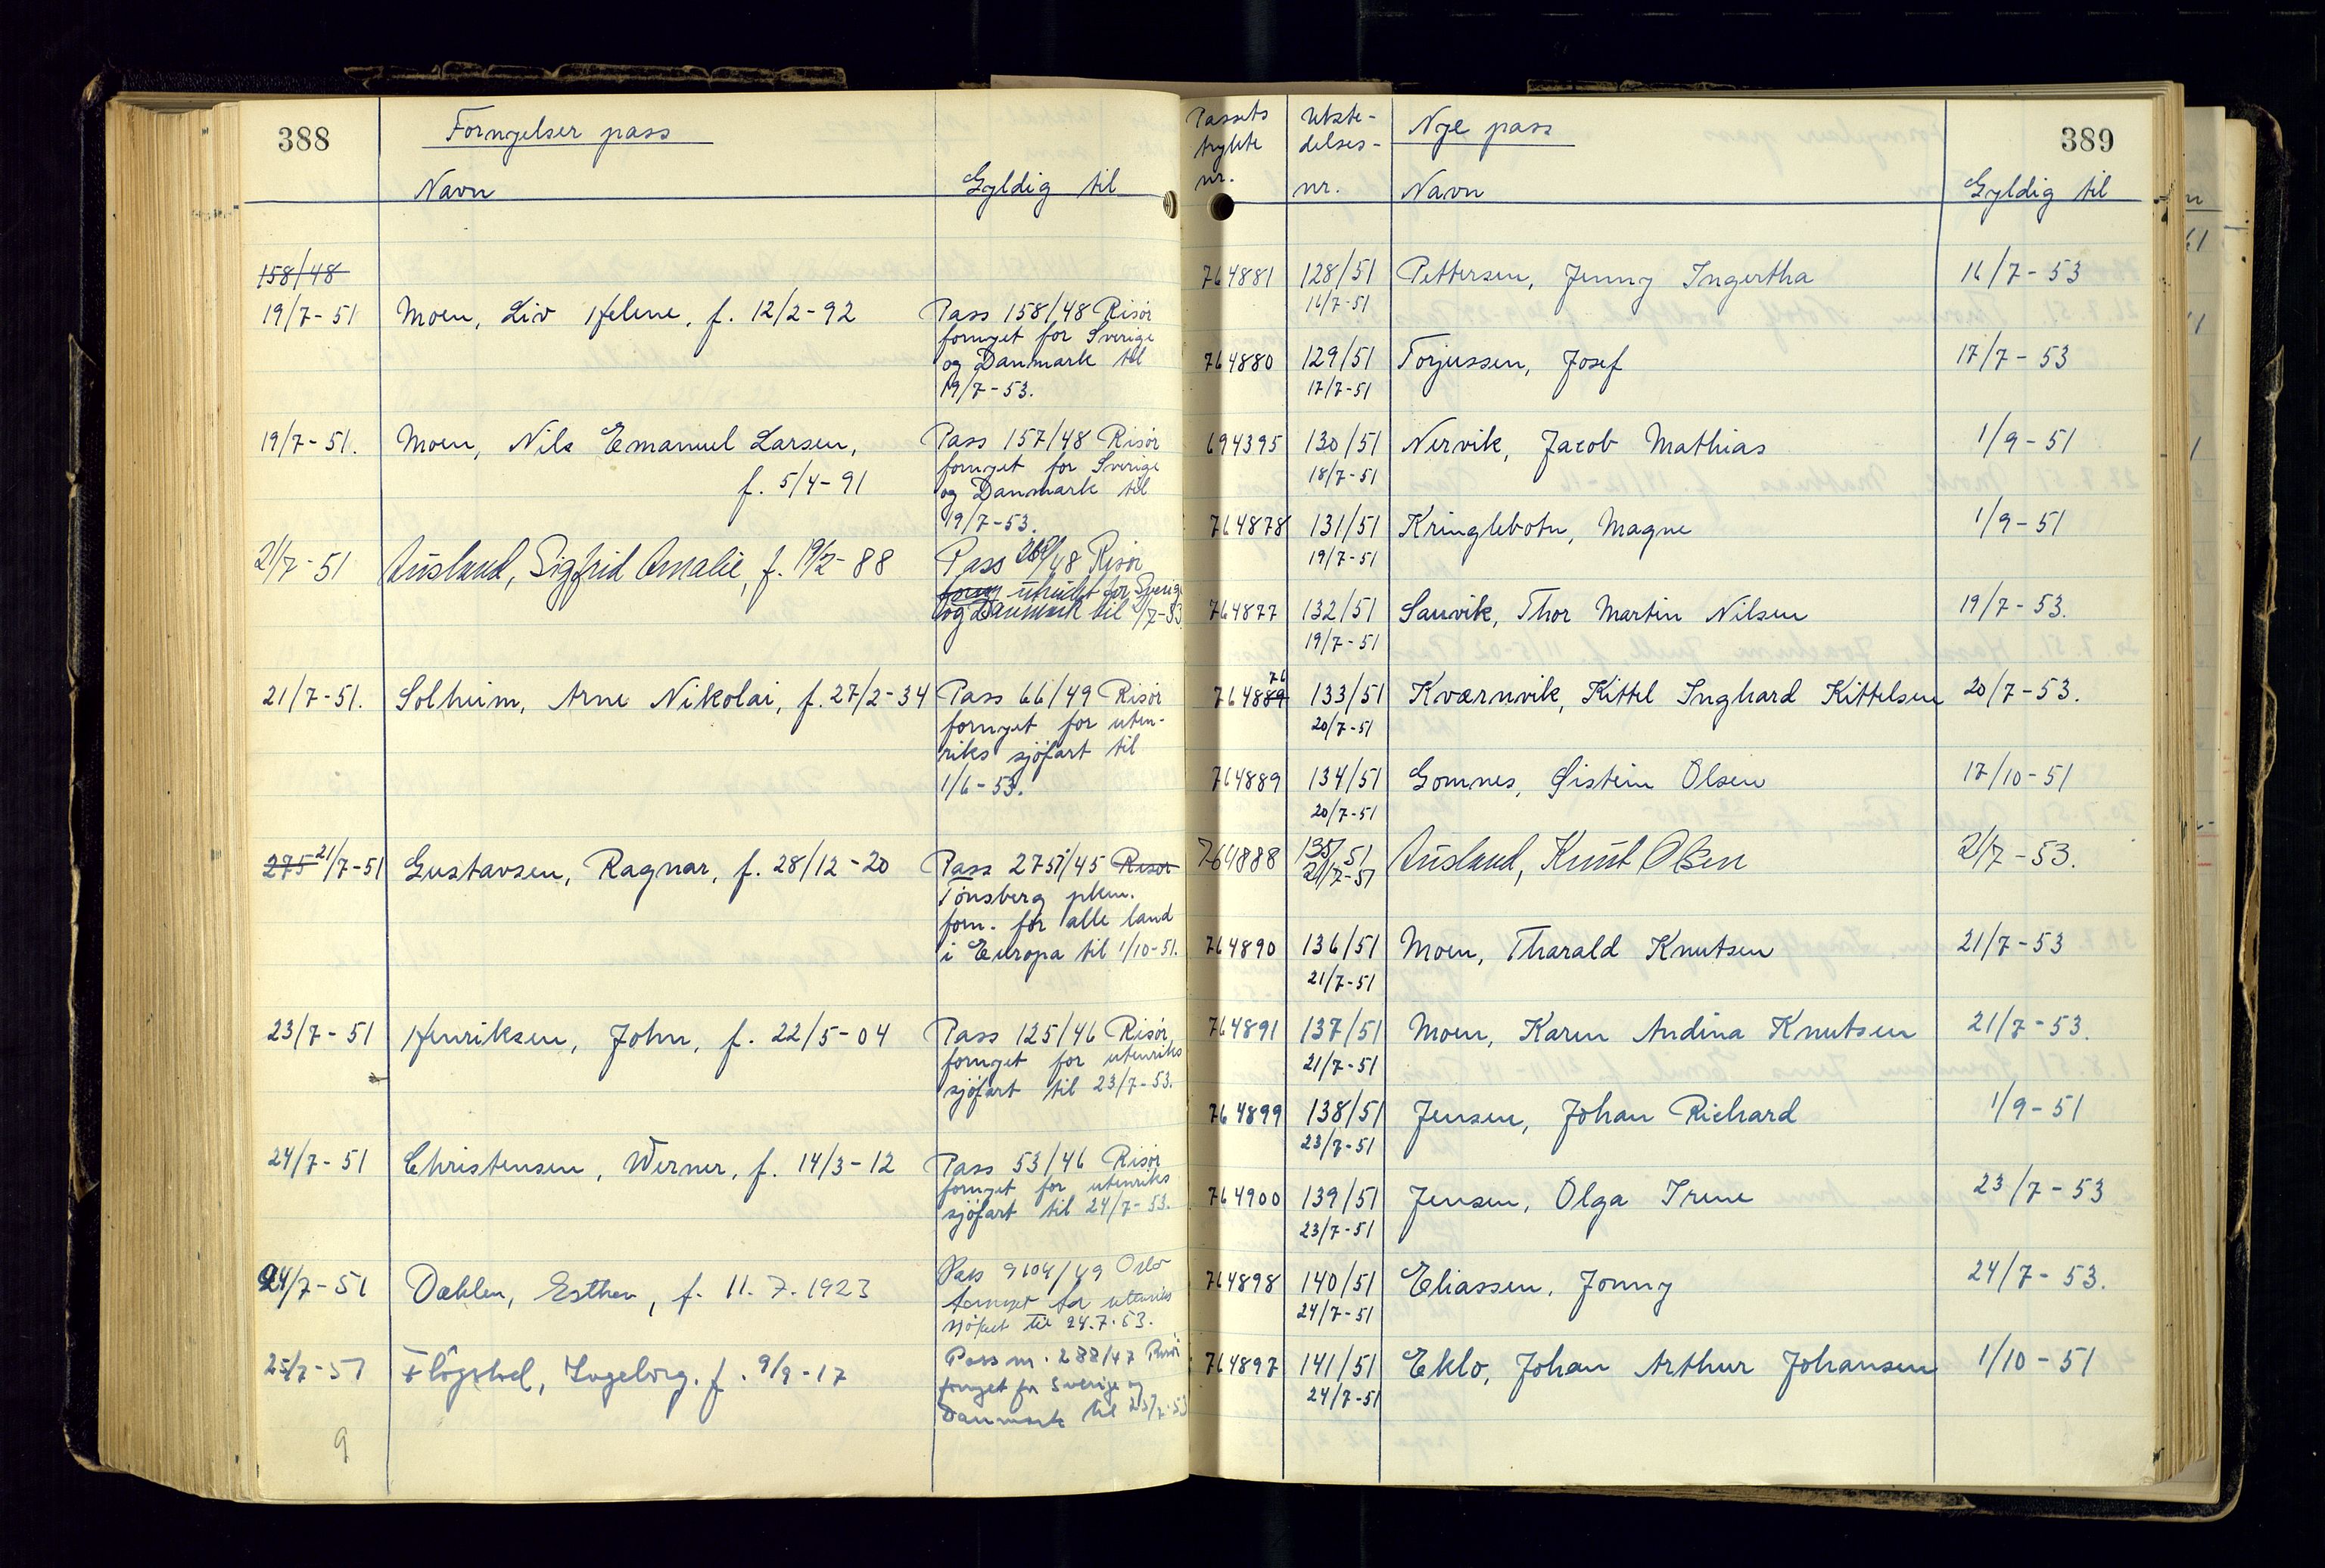 388
Fornyelser pass
Navn
Gyldig til
158/48
19/7-51 Moen, Liv Helene, f. 12/2-92 Pass 158/48 Risör
fornyet for Sverige
og Danmark til
19/7-53.
19/7-51. Moen, Nils Emanuel Larsen, Pass 157/48 Risör
f. 5/4-91 fornyet for Sverige
og Danmark til
19/7-53.
21/7-51 Ausland, Sigfrid Amalie, f. 19/2-88 Pass /48 Risör
forny utvidet for Sverige
og Danmark til 21/7-53
21/7-51. Solheim, Arne Nikolai, f. 27/2-34 Pass 66/49 Risör
fornyet for uten-
riks sjöfart til
1/6-53.
275 21/7-51 Gustavsen, Ragnar, f. 28/12-20 Pass 2751/45 Risör
Tönsberg pkm.
forn. for alle land
i Europa til 1/10-51.
23/7-51 Henriksen, John, f. 22/5-04 Pass 125/46 Risör
fornyet for utenriks
sjöfart til 23/7-53.
24/7-51 Christensen, Werner, f. 14/3-12 Pass 53/46 Risör
fornyet for utenriks
sjöfart til 24/7-53.
24/7-51 Dahlen, Esther, f. 11.7.1923 Pass 9604/49 Oslo
fornyet for utenriks
sjöfart til 24.7.53.
25/7-51 Flögstad, Ingeborg. f. 9/9-17 Pass nr. 288/47 Risör
fornyet for Sverige og
Danmark til 25/7-53
9
389
Passets Utste- Nye pass
trykte delses-
nr. nr. Navn Gyldig til
764881 128/51 Pettersen, Jenny Ingertha 16/7-53
16/7-51
764880 129/51 Torjussen, Josef 17/7-53
17/7-51
694395 130/51 Nervik, Jacob Mathias 1/9-51
18/7-51
764878 131/51 Kringlebotn, Magne 1/9-51
19/7-51
764877 132/51 Sauvik, Thor Martin Nilsen 19/7-53.
19/7-51
76
764889 133/51 Kværnvik, Kittel Inghard Kittelsen 20/7-53.
20/7-51
764889 134/51 Gomnes, Øistein Olsen 17/10-51
20/7-51
764888 135/51 Ausland, Knut Olsen 21/7-53.
21/7-51
764890 136/51 Moen, Tharald Knutsen 21/7-53
21/7-51
764891 137/51 Moen, Karen Andina Knutsen 21/7-53.
21/7-51
764899 138/51 Jensen, Johan Richard 1/9-51
23/7-51
764900 139/51 Jensen, Olga Irene 23/7-53
23/7-51
764898 140/51 Eliassen, Jonny 24/7-53.
24/7-51
764897 141/51 Eklo, Johan Arthur Johansen 1/10-51
24/7-51